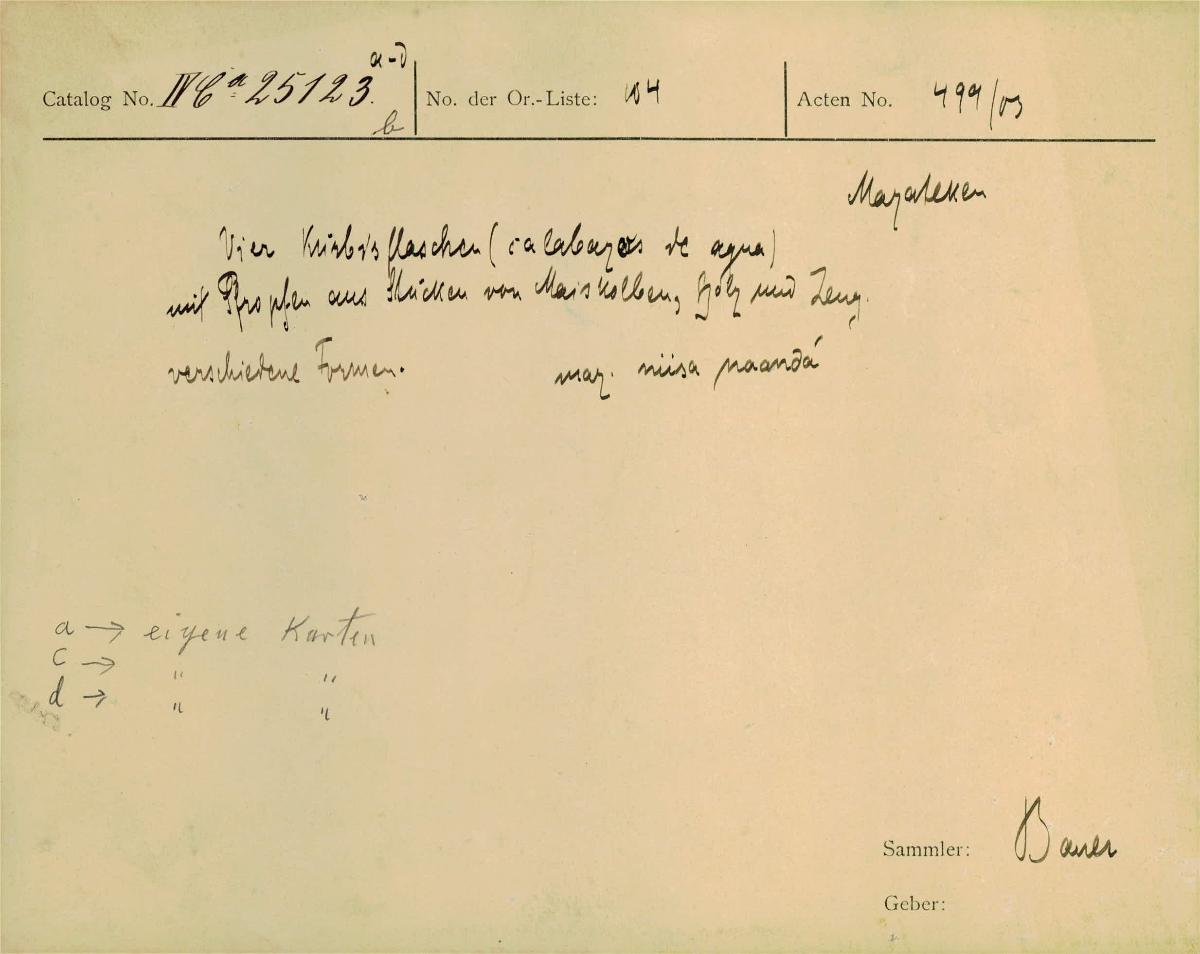 Catalog No. IV Ca 25123. a-d
b
No. der Or.-Liste: 104
Acten No. 499/03
Mazateken
Vier Kürbisflaschen (calabazos de agua)
mit Pfropfen aus Stücken von Maiskolben, Holz und Zeug.
verschiedene Formen. maz. niisa naandá
a → eigene Karten
c → " "
d → " "
Sammler: Bauer
Geber: